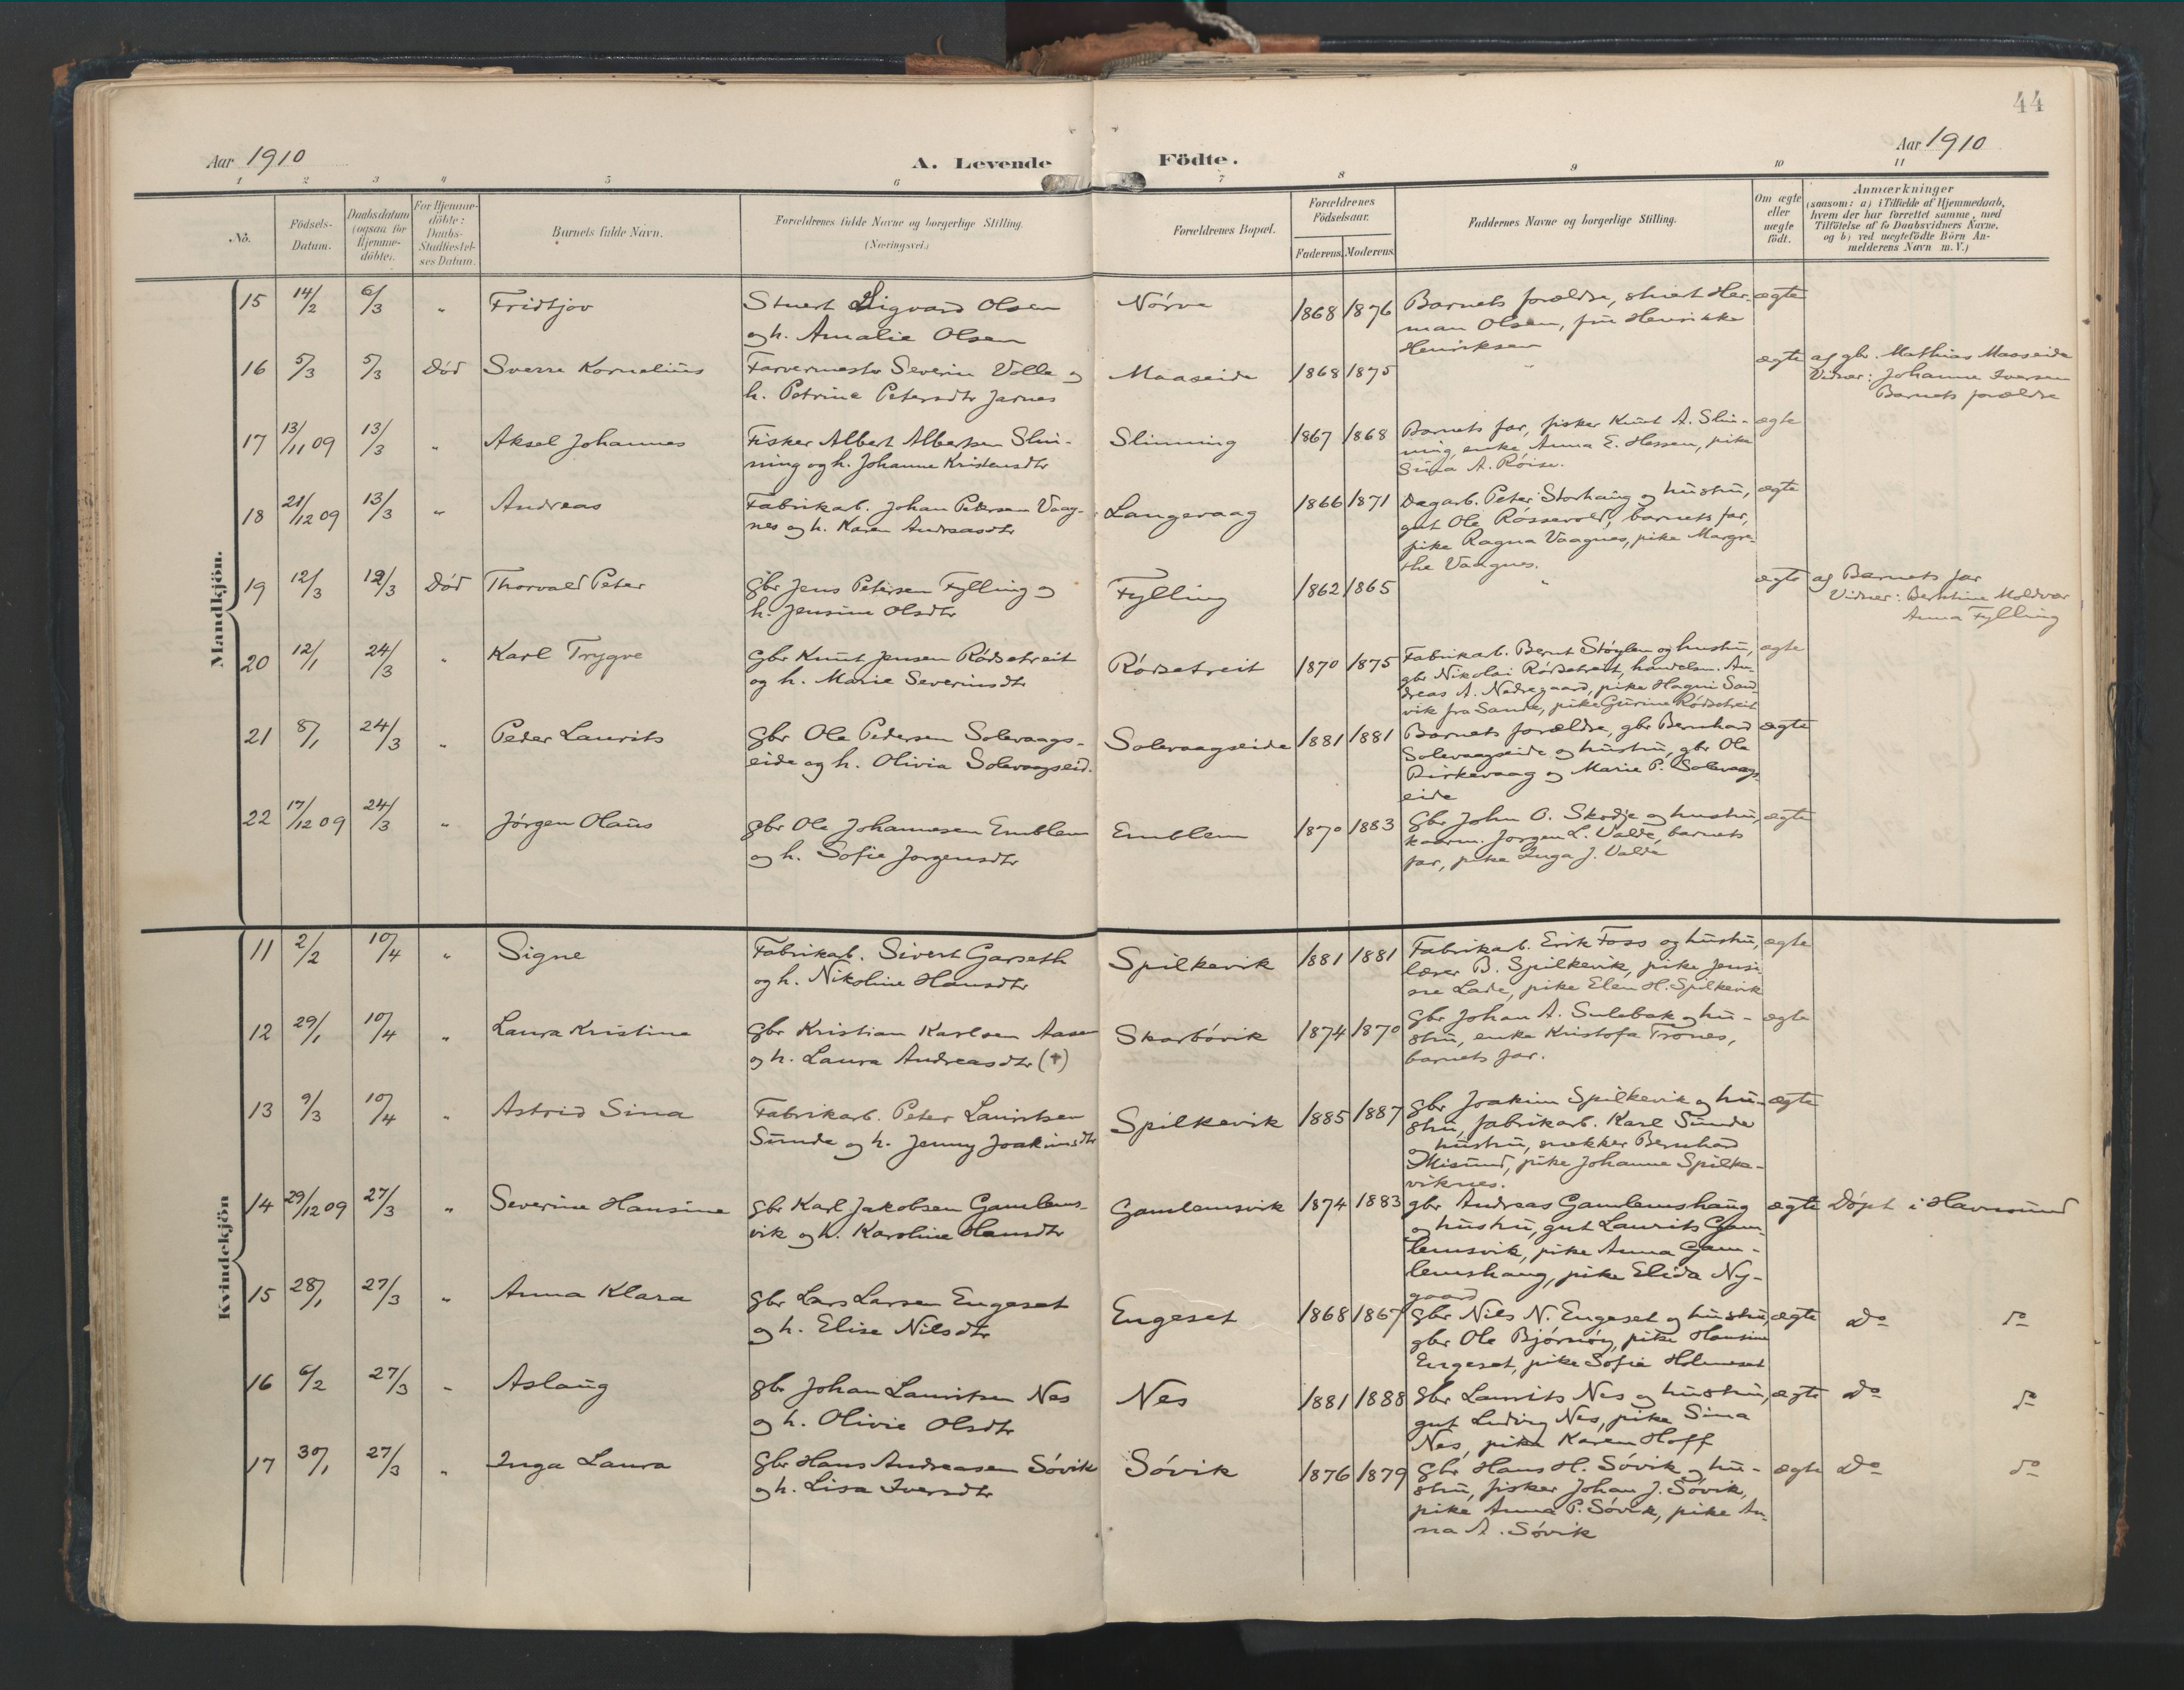 44
Aar 1910
A. Levende Födte.
Aar 1910
1 2 3 4 5 6 7 8 9 10 11
No.
Födsels-
Datum.
Daabsdatum
(ogsaa for
Hjemme-
döbte).
For Hjemme-
döbte:
Daabs-
Stadfæstel-
ses Datum.
Barnets fulde Navn.
Forældrenes fulde Navne og borgerlige Stilling.
(Næringsvei.)
Forældrenes Bopæl.
Forældrenes
Födselsaar.
Faderens. Moderens.
Faddernes Navne og borgerlige Stilling.
Om ægte
eller
uægte
födt.
Anmærkninger
(saasom: a) i Tilfælde af Hjemmedaab,
hvem der har forrettet samme, med
Tilföielse af to Daabsvidners Navne,
og b) ved uægtefödte Börn An-
melderens Navn m. V.)
Mandkjön.
15 14/2 6/3 " Fridtjov
Stuert Sigvard Olsen
og h. Amalie Olsen
Nørve 1868 1876
Barnets forældre, stuert Her-
man Olsen, frü Henrikke
Henriksen
ægte
16 5/3 5/3 Død Sverre Kornelius
Farvermester Severin Volle og
h. Petrine Petersdtr Jarnes
Maaseide 1868 1875 "
ægte
af gbr. Mathias Maaseide
Vidner: Johanne Iversen
Barnets forældre
17 13/11 09 13/3 " Aksel Johannes
Fisker Albert Albertsen Slin-
ning og h. Johanne Kristensdtr
Slinning 1867 1868
Barnets far, fisker Knut A. Slin-
ning, enke Anna E. Hessen, pike
Sina A. Røise.
ægte
18 21/12 09 13/3 " Andreas
Fabrikarb. Johan Petersen Vaag-
nes og h. Karen Andreasdtr
Langevaag 1866 1871
Dagarb. Peter Storhaug og hustru,
gut Ole Røssevold, barnets far,
pike Ragna Vaagnes, pike Margre-
the Vaagnes.
ægte
19 12/3 12/3 Død Thorvald Peter
Gbr Jens Petersen Fylling og
h. Jensine Olsdtr
Fylling 1862 1865 "
ægte
af Barnets far
Vidner: Berthine Moldvær
Anna Fylling
20 12/1 24/3 " Karl Trygve
Gbr Knut Jensen Rødsetreit
og h. Marie Severinsdtr
Rødsetreit 1870 1875
Fabrikarb. Bernt Støylen og hustru,
gbr Nikolai Rødsetreit, handelsm. An-
dreas A. Nedregaard, pike Hagni Sand
vik fra Sande, pike Gurine Rødsetreit
ægte
21 8/1 24/3 " Peder Laurits
Gbr Ole Pedersen Solevaags-
eide og h. Olivia Solevaagseid.
Solevaagseide 1881 1881
Barnets forældre, gbr Bernhard
Solevaagseide og hustru, gbr Ole
Birkevaag og Marie P. Solevaags-
eide
ægte
22 17/12 09 24/3 " Jørgen Olaus
Gbr Ole Johannesen Emblem
og h. Sofie Jørgensdtr
Emblem 1870 1883
Gbr John O. Skodje og hustru,
kaarm. Jørgen L. Valde, barnets
far, pike Inga J. Valde
ægte
Kvindekjön
11 2/2 10/4 " Signe
Fabrikarb. Sivert Garseth
og h. Nikoline Hansdtr
Spilkevik 1881 1881
Fabrikarb. Erik Foss og hustru,
lærer B. Spilkevik, pike Jensi
ne Lade, pike Elen H. Spilkevik
ægte
12 29/1 10/4 " Laura Kristine
Gbr Kristian Karlsen Aasen
og h. Laura Andreasdtr (†)
Skarbøvik 1874 1870
Gbr Johan A. Sulebak og hu-
stru, enke Kristofa Trones,
barnets far.
ægte
13 9/3 10/4 " Astrid Sina
Fabrikarb. Peter Lauritsen
Sunde og h. Jenny Joakimsdtr
Spilkevik 1885 1887
Gbr Joakim Spilkevik og hu-
stru, fabrikarb. Karl Sunde
og hustru, snekker Bernhard
Misund, pike Johanne Spilke-
viknes.
ægte
14 29/12 09 27/3 " Severine Hansine
Gbr Karl Jakobsen Gamlems-
vik og h. Karoline Hansdtr
Gamlemsvik 1874 1883
gbr Andreas Gamlemshaug
og hustru, gut Laurits Gam
lemsvik, pike Anna Gam-
lemshaug, pike Elida Ny-
gaard
ægte Døpt i Havnsund
15 28/1 27/3 " Anna Klara
Gbr Lars Larsen Engeset
og h. Elise Nilsdtr
Engeset 1868 1867
Gbr Nils N. Engeset og hustru,
gbr Ole Bjørnøy, pike Hansine
Engeset, pike Sofie Holmeset
ægte do do
16 6/2 27/3 " Aslaug
Gbr Johan Lauritsen Nes
og h. Olivie Olsdtr
Nes 1881 1888
Gbr Laurits Nes og hustru,
gut Ludvig Nes, pike Sina
Nes, pike Karen Hoff
ægte do do
17 30/1 27/3 " Inga Laura
Gbr Hans Andreasen Søvik
og h. Lisa Iversdtr
Søvik 1876 1879
Gbr Hans H. Søvik og hu-
stru, fisker Johan J. Søvik,
pike Anna P. Søvik, pike An-
na A. Søvik
ægte do do